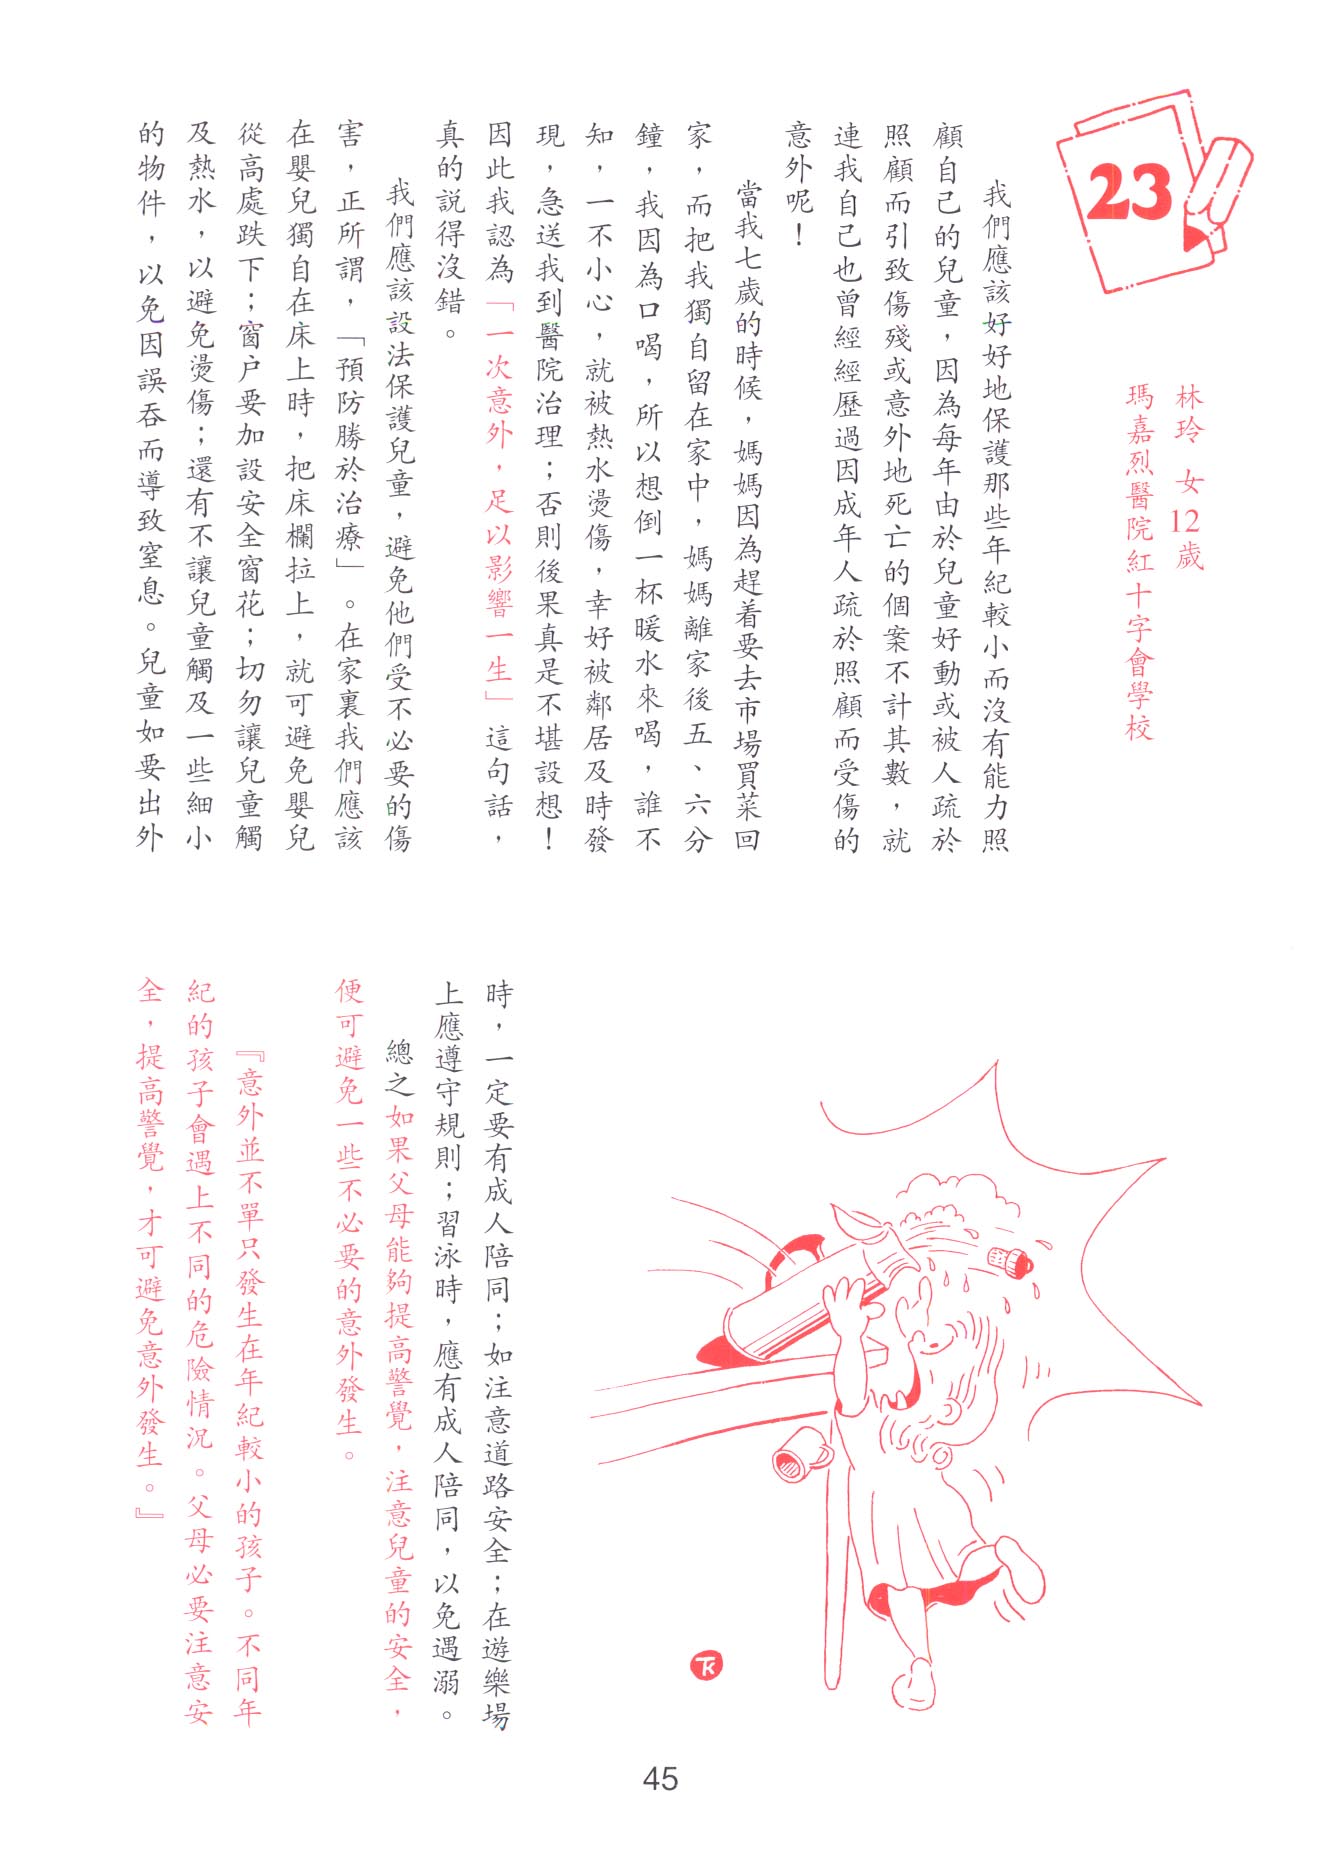 23
林玲 女12歲
瑪嘉烈醫院紅十字會學校
我們應該好好地保護那些年紀較小而沒有能力照
顧自己的兒童，因為每年由於兒童好動或被人疏於
照顧而引致傷殘或意外地死亡的個案不計其數，就
連我自己也曾經經歷過因成年人疏於照顧而受傷的
意外呢！
當我七歲的時候，媽媽因為趕着要去市場買菜回
家，而把我獨自留在家中，媽媽離家後五、六分
鐘，我因為口喝，所以想倒一杯暖水來喝，誰不
知，一不小心，就被熱水燙傷，幸好被鄰居及時發
現，急送我到醫院治理；否則後果真是不堪設想！
因此我認為「一次意外，足以影響一生」這句話，
真的說得沒錯。
我們應該設法保護兒童，避免他們受不必要的傷
害，正所謂，「預防勝於治療」。在家裏我們應該
在嬰兒獨自在床上時，把床欄拉上，就可避免嬰兒
從高處跌下；窗户要加設安全窗花；切勿讓兒童觸
及熱水，以避免燙傷；還有不讓兒童觸及一些細小
的物件，以免因誤吞而導致窒息。兒童如要出外
時，一定要有成人陪同；如注意道路安全；在遊樂場
上應遵守規則；習泳時，應有成人陪同，以免遇溺。
總之如果父母能夠提高警覺，注意兒童的安全，
便可避免一些不必要的意外發生。
『意外並不單只發生在年紀較小的孩子。不同年
紀的孩子會遇上不同的危險情況。父母必要注意安
全，提高警覺，才可避免意外發生。』
TK
45